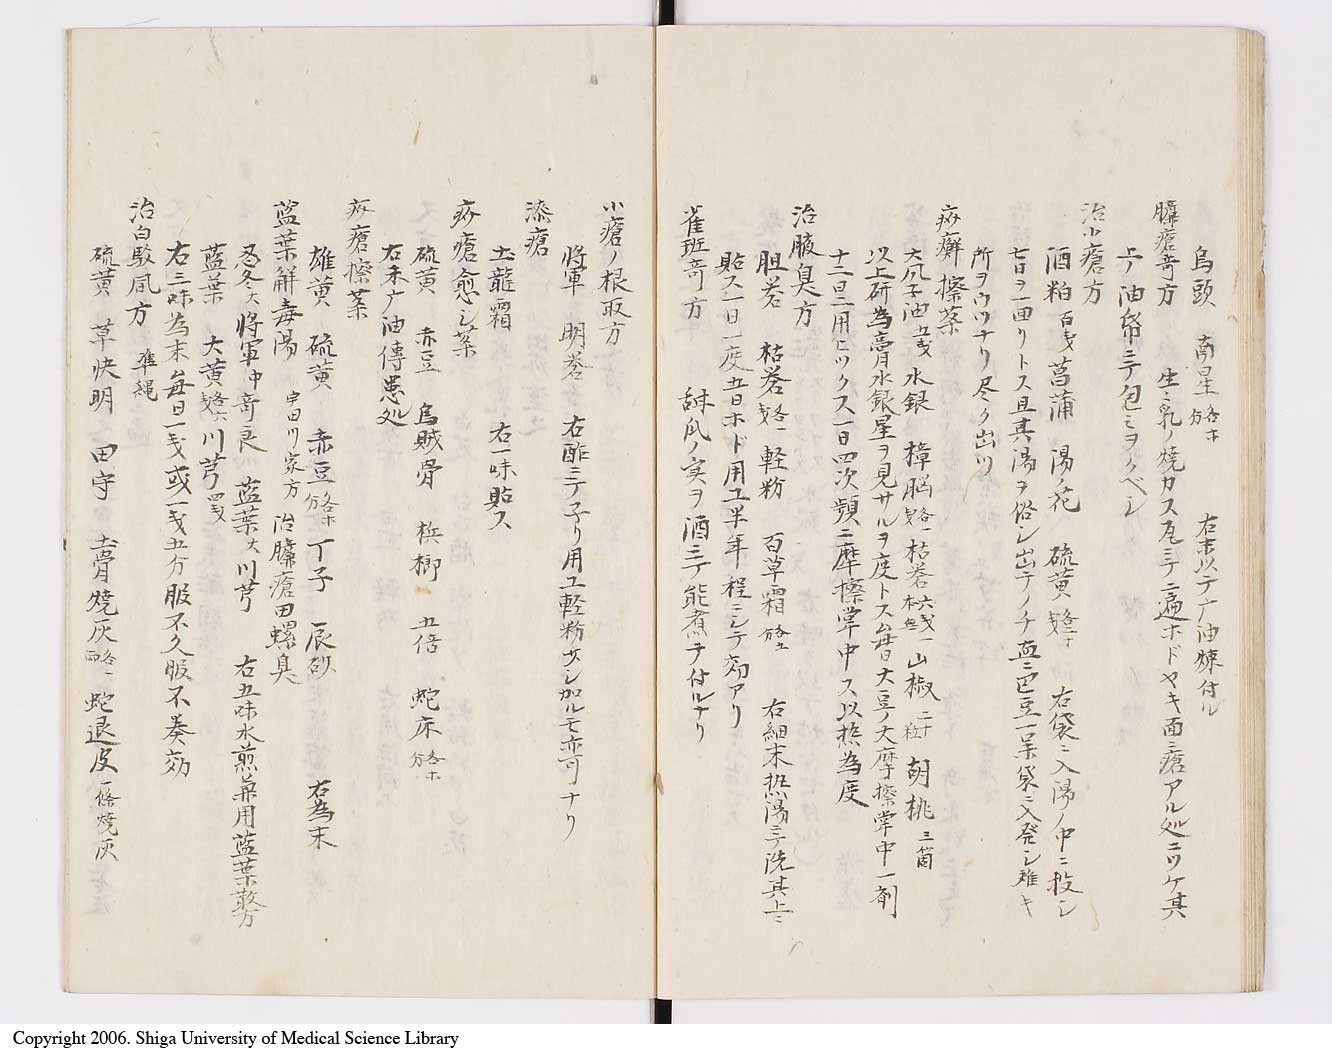 烏頭 南星各ホ分 右末以テ广油煉付ル
臁瘡奇方 生ミ乳ノ焼カス瓦ミテ二遍ホドヤキ面ミ瘡アル処ニツケ其
上ヲ油帋ニテ包ミヲクベシ
治小瘡方
酒粕百戔 菖蒲 湯ノ花 硫黄各二十戔 右袋ニ入湯ノ中ニ投シ
七日ヲ一回リトス且其湯ヲ俗シ出テノチ 巴豆一味袋ニ入発シ難キ
所ヲウツナリ尽ク出ツ
疥癬擦薬
大凡子油五戔 水銀 樟脳各一戔 枯礬六戔 山椒二十粒 胡桃三箇
以上研為膏水銀星ヲ見サルヲ度トス毎日大豆ノ大摩擦掌中一剤
十二日ニ用ヒツクス一日四次頻ニ摩擦掌中ス以热為度
治腋臭方
胆礬 枯礬各一戔 軽粉 百草霜各五分 右細末热湯ミテ洗其上ミ
貼ス一日一度五日ホド用ユ半年程ニシテ効アリ
雀班奇方 瓜ノ実ヲ酒ミテ能煮テ付ルナリ
小瘡ノ根取方
将軍 明礬 右酢ミテ子リ用ユ軽粉少シ加ルモ亦可ナリ
漆瘡
土龍霜 右一味貼ス
疥瘡愈シ薬
硫黄 赤豆 烏賊骨 梹榔 五倍 蛇床各ホ分
右末广油傳患処
疥瘡擦薬
雄黄 硫黄 赤豆各ホ分 丁子 辰砂 右為末
藍葉解毒湯 宇田川家方 治臁瘡田螺臭
忍冬大 将軍中 奇良 藍葉大 川芎 右五味水煎兼用藍葉散方
藍葉 大黄各六戔 川芎四戔
右三味為末毎日一戔或一戔五分服不久服不奏効
治白駁風方 準縄
硫黄 草决明 田守 土骨焼灰各一両 蛇退皮一條焼灰
Copyright 2006. Shiga University of Medical Science Library